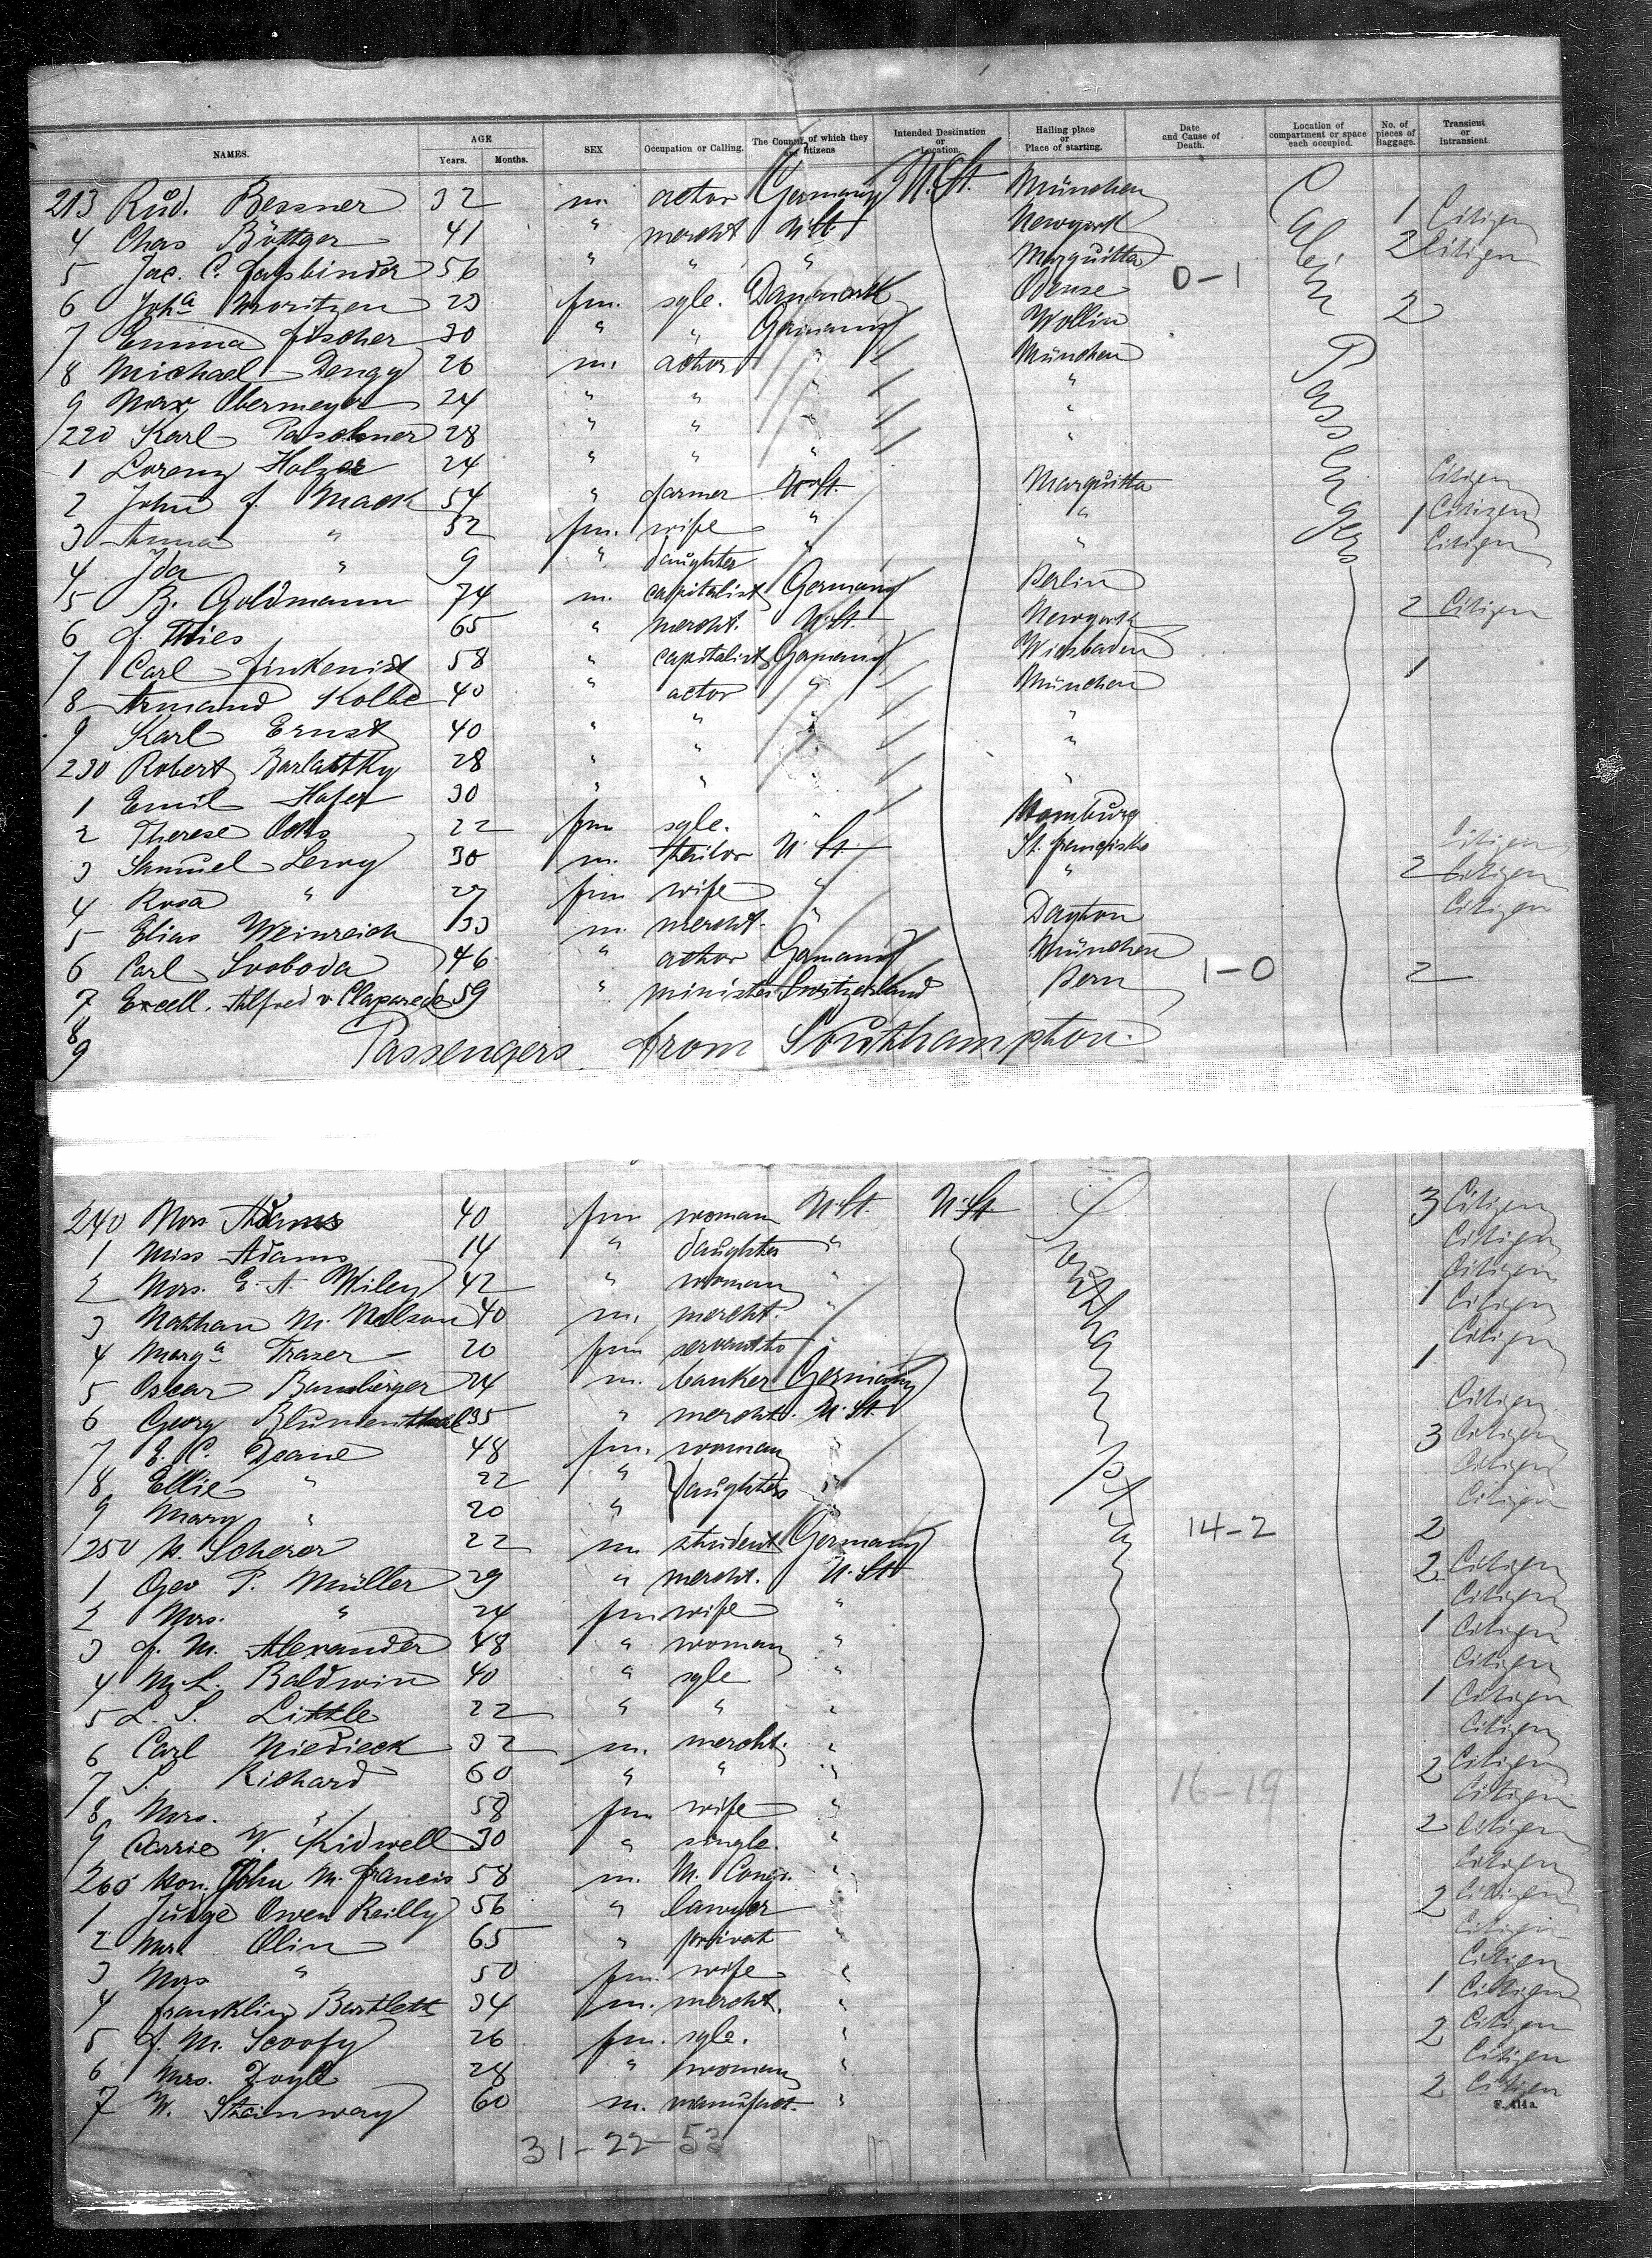 NAMES. AGE Years. Months. SEX Occupation or Calling. The Country of which they are Citizens Intended Destination or Location. Hailing place or Place of starting. Date and Cause of Death. Location of compartment or space each occupied. No. of pieces of Baggage. Transient or Intransient.
213 Rud. Bessner 32 m. actor Germany U.St. München
4 Chas Böttger 41 " mercht U.St. Newyork 1 Citizen
5 Jac. C. Fassbinder 56 " " " Marquitta 2 Citizen
6 Joha Moritzen 23 fm. sgle. Danmark Odense 0-1
7 Emma Fischer 30 " " Germany Wollin 2
8 Michael Dengg 26 m. actor " München
9 Max Obermeyer 24 " " " "
220 Karl Paschner 28 " " " "
1 Lorenz Holzer 24 " " " "
2 John F. Mack 54 " farmer U.St. Marquitta Citizen
3 Anna " 52 fm. wife " " 1 Citizen
4 Ida " 9 " daughter " " Citizen
5 B. Goldmann 74 m. capitalist Germany Berlin
6 F. Thies 65 " mercht. U.St. Newyork 2 Citizen
7 Carl Finkenist 58 " capitalist Germany Wiesbaden
8 Armand Kolbe 40 " actor " München 1
9 Karl Ernst 40 " " " "
230 Robert Barlatthy 28 " " " "
1 Emil Hafer 30 " " " "
2 Therese Ochs 22 fm sgle. " Homburg
3 Samuel Levvy 30 m. tailor U.St. St. franzisko Citizen
4 Rosa " 27 fm wife " " 2 Citizen
5 Elias Weinreich 33 m. mercht. " Dayton Citizen
6 Carl Svoboda 46 " actor Germany München
7 Excell. Alfred v. Claparede 59 " minister Switzerland Bern 1-0 2
8
9 Passengers from Southampton.
Cabin Passengers
240 Mrs Adams 40 fm woman U.St. U.St. 3 Citizen
1 Miss Adams 14 " daughter " Citizen
2 Mrs. E. A. Wiley 42 " woman " Citizen
3 Nathan M. Nelson 40 m. mercht. " 1 Citizen
4 Marga Frazer 20 fm servant " Citizen
5 Oscar Bamberger 24 m. banker Germany 1
6 Georg Blumenthal 35 " mercht. U.St. Citizen
7 E. C. Deane 48 fm. woman " 3 Citizen
8 Ellie " 22 " daughters " Citizen
9 Mary " 20 " " Citizen
250 W. Scherer 22 m student Germany 14-2 2
1 Geo P. Müller 29 " mercht. U.St. 2 Citizen
2 Mrs. " 24 fm wife " Citizen
3 F. M. Alexander 48 " woman " 1 Citizen
4 M. L. Baldwin 40 " sgle " Citizen
5 L. S. Little 22 " " " 1 Citizen
6 Carl Niedieck 32 m. mercht. " Citizen
7 S. Richard 60 " " " 2 Citizen
8 Mrs. " 58 fm wife " 16-19 Citizen
9 Carrie V. Kidwell 30 " single. " 2 Citizen
260 Hon. John M. Francis 58 m. M. Congr. " Citizen
1 Judge Owen Reilly 56 " lawyer " 2 Citizen
2 Mr. Olin 65 " privat " Citizen
3 Mrs " 50 fm. wife " Citizen
4 Franklin Bartlett 34 m. mercht. " 1 Citizen
5 F. M. Scoofy 26 fm. sgle. " 2 Citizen
6 Mrs. Doyle 28 " woman " Citizen
7 W. Steinway 60 m. manufact. " 2 Citizen
F. 414a.
31-22-53
Southampton